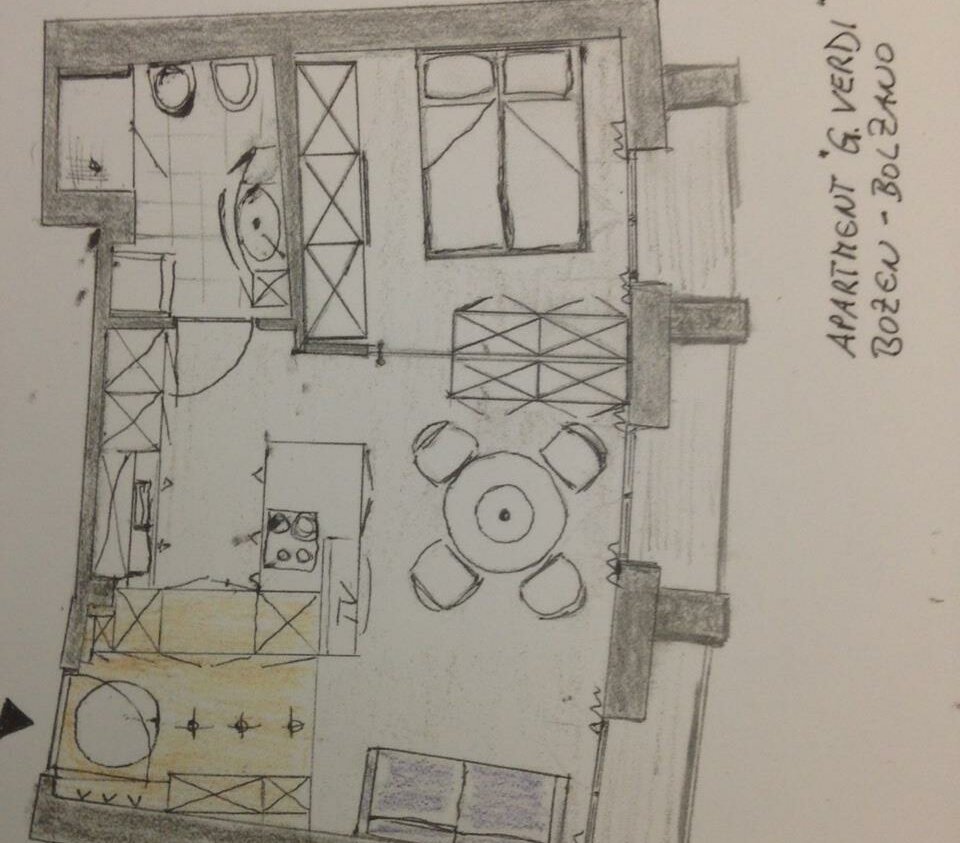 APARTMENT "G. VERDI"
BOZEN - BOLZANO
TV